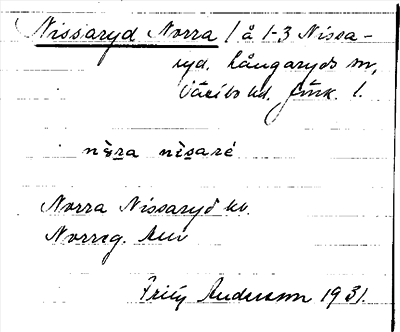 Nissaryd Norra 1 å 1-3 Nissa-
ryd. Långaryds sn,
Västbo hd. Jönk. l.
nèra nìsaré
Norra Nissaryd kv.
Norreg.
Andersson 1931.